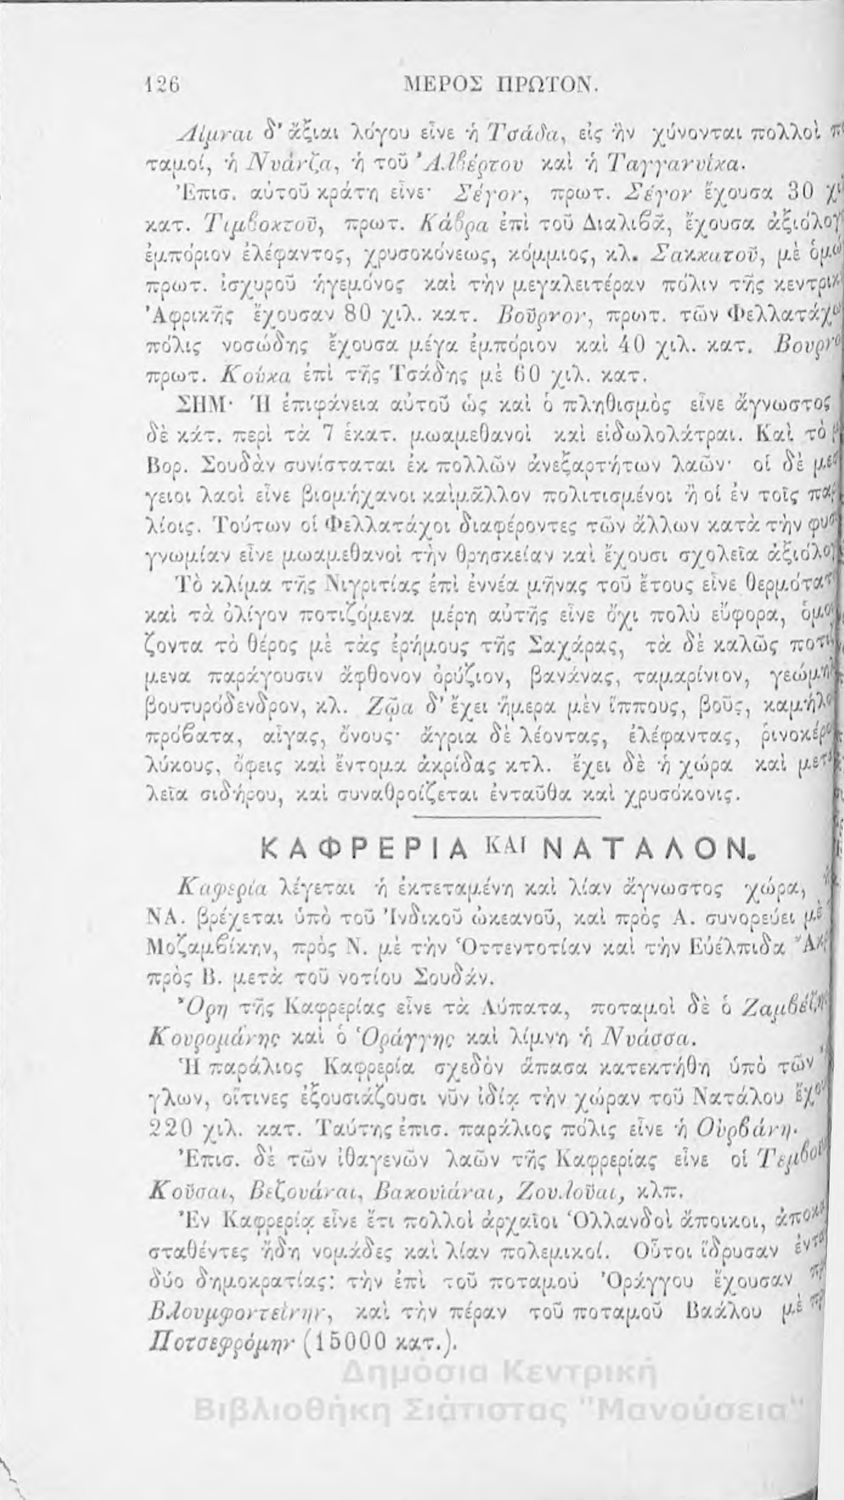 126 ΜΕΡΟΣ ΠΡΩΤΟΝ.
Λίμναι δ' ἄξιαι λόγου εἶνε ἡ Τσάδα, εἰς ἣν χύνονται πολλοὶ
ταμοί, ἡ Νυάνζα, ἡ τοῦ Ἀλβέρτου καὶ ἡ Ταγγανυίκα.
Ἐπισ. αὐτοῦ κράτη εἶνε· Σέγον, πρωτ. Σέγον ἔχουσα 30
κατ. Τιμβοκτοῦ, πρωτ. Κάβρα ἐπὶ τοῦ Διαλιβᾶ, ἔχουσα ἀξιόλογ
ἐμπόριον ἐλέφαντος, χρυσοκόνεως, κόμμιος, κλ. Σακκατοῦ, μὲ ὁμω
πρωτ. ἰσχυροῦ ἡγεμόνος καὶ τὴν μεγαλειτέραν πόλιν τῆς κεντρικ
Ἀφρικῆς ἔχουσαν 80 χιλ. κατ. Βοῦρνον, πρωτ. τῶν Φελλατάχω
πόλις νοσώδης ἔχουσα μέγα ἐμπόριον καὶ 40 χιλ. κατ. Βουρνο
πρωτ. Κούκα ἐπὶ τῆς Τσάδης μὲ 60 χιλ. κατ.
ΣΗΜ· Ἡ ἐπιφάνεια αὐτοῦ ὡς καὶ ὁ πληθισμὸς εἶνε ἄγνωστος
δὲ κάτ. περὶ τὰ 7 ἑκατ. μωαμεθανοὶ καὶ εἰδωλολάτραι. Καὶ τὸ
Βορ. Σουδὰν συνίσταται ἐκ πολλῶν ἀνεξαρτήτων λαῶν· οἱ δὲ μεσ
γειοι λαοὶ εἶνε βιομήχανοι καὶμᾶλλον πολιτισμένοι ἢ οἱ ἐν τοῖς παρ
λίοις. Τούτων οἱ Φελλατάχοι διαφέροντες τῶν ἄλλων κατὰ τὴν φυσ
γνωμίαν εἶνε μωαμεθανοὶ τὴν θρησκείαν καὶ ἔχουσι σχολεῖα ἀξιόλογ
Τὸ κλίμα τῆς Νιγριτίας ἐπὶ ἐννέα μῆνας τοῦ ἔτους εἶνε θερμότατ
καὶ τὰ ὀλίγον ποτιζόμενα μέρη αὐτῆς εἶνε ὄχι πολὺ εὔφορα, ὁμο
ζοντα τὸ θέρος μὲ τὰς ἐρήμους τῆς Σαχάρας, τὰ δὲ καλῶς ποτι
μενα παράγουσιν ἄφθονον ὀρύζιον, βανάνας, ταμαρίνιον, γεώμηλ
βουτυρόδενδρον, κλ. Ζῷα δ' ἔχει ἥμερα μὲν ἵππους, βοῦς, καμήλο
πρόβατα, αἶγας, ὄνους· ἄγρια δὲ λέοντας, ἐλέφαντας, ῥινοκέρ
λύκους, ὄφεις καὶ ἔντομα ἀκρίδας κτλ. ἔχει δὲ ἡ χώρα καὶ μετ
λεῖα σιδήρου, καὶ συναθροίζεται ἐνταῦθα καὶ χρυσόκονις.
ΚΑΦΡΕΡΙΑ ΚΑΙ ΝΑΤΑΛΟΝ.
Καφερία λέγεται ἡ ἐκτεταμένη καὶ λίαν ἄγνωστος χώρα,
ΝΑ. βρέχεται ὑπὸ τοῦ Ἰνδικοῦ ὠκεανοῦ, καὶ πρὸς Α. συνορεύει μὲ
Μοζαμβίκην, πρὸς Ν. μὲ τὴν Ὀττεντοτίαν καὶ τὴν Εὐέλπιδα Ἄκρ
πρὸς Β. μετὰ τοῦ νοτίου Σουδάν.
Ὄρη τῆς Καφρερίας εἶνε τὰ Λύπατα, ποταμοὶ δὲ ὁ Ζαμβέζη
Κουρομάνης καὶ ὁ Ὀράγγης καὶ λίμνη ἡ Νυάσσα.
Ἡ παράλιος Καφρερία σχεδὸν ἅπασα κατεκτήθη ὑπὸ τῶν
γλων, οἵτινες ἐξουσιάζουσι νῦν ἰδίᾳ τὴν χώραν τοῦ Νατάλου ἔχο
220 χιλ. κατ. Ταύτης ἐπισ. παράλιος πόλις εἶνε ἡ Οὐρβάνη·
Ἐπισ. δὲ τῶν ἰθαγενῶν λαῶν τῆς Καφρερίας εἶνε οἱ Τεμβου
Κοῦσαι, Βεζουάναι, Βακουϊάναι, Ζουλοῦαι, κλπ.
Ἐν Καφρερίᾳ εἶνε ἔτι πολλοὶ ἀρχαῖοι Ὁλλανδοὶ ἄποικοι, ἀποκα
σταθέντες ἤδη νομάδες καὶ λίαν πολεμικοί. Οὗτοι ἵδρυσαν ἐντα
δύο δημοκρατίας: τὴν ἐπὶ τοῦ ποταμοῦ Ὀράγγου ἔχουσαν πρ
Βλουμφοντεΐνην, καὶ τὴν πέραν τοῦ ποταμοῦ Βαάλου μὲ πρ
Ποτσεφρόμην (15000 κατ.).
Δημόσια Κεντρική
Βιβλιοθήκη Σιάτιστας "Μανούσεια"